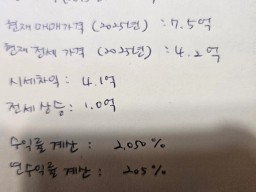 현재 매매가격 (2025년) : 7.5억
현재 전세 가격 (2025년) : 4.2억
시세차익 : 4.1억
전세 상승 : 1.0억
수익률 계산 : 2,050%
연수익률 계산 : 205%